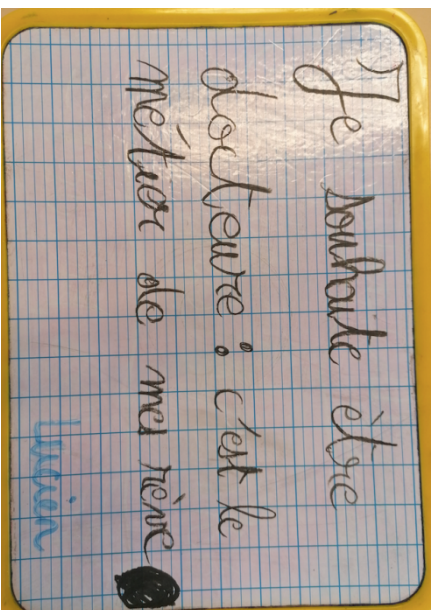 Je souhaite être
docteure : c'est le
métier de mes rève
Lucien